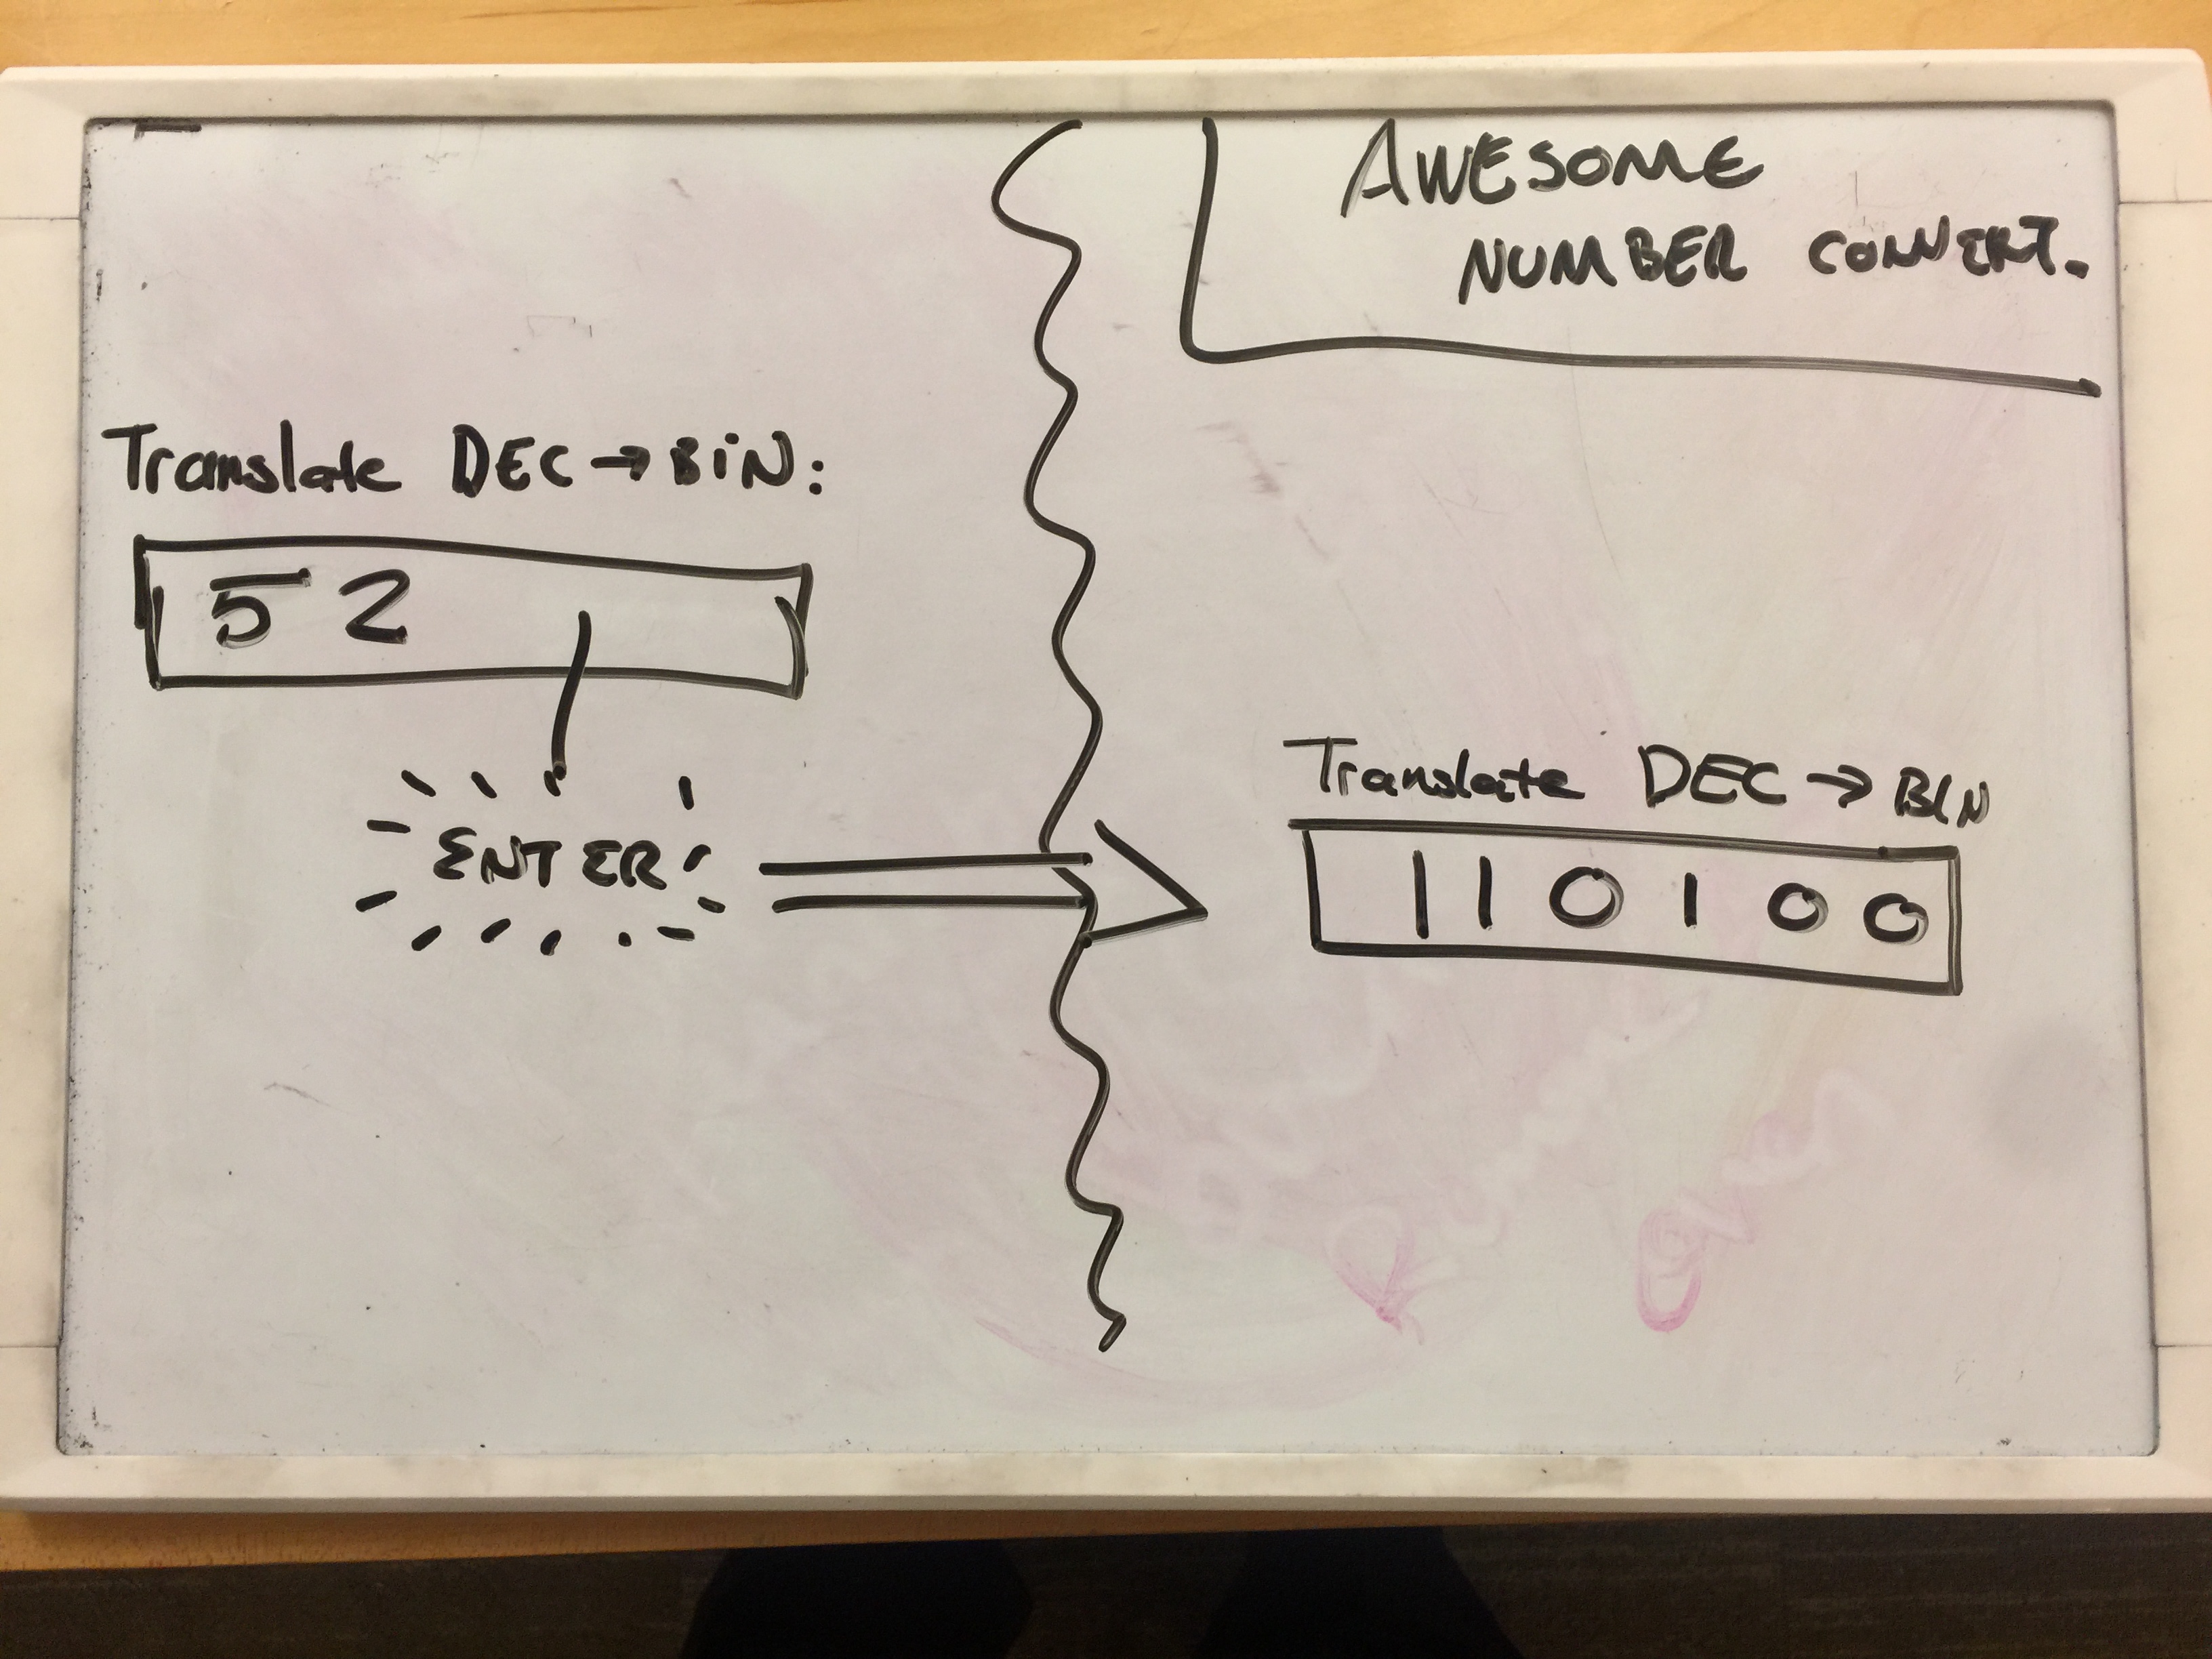 AWESOME
NUMBER CONVERT.
Translate DEC → BIN:
52
ENTER
Translate DEC → BIN
110100